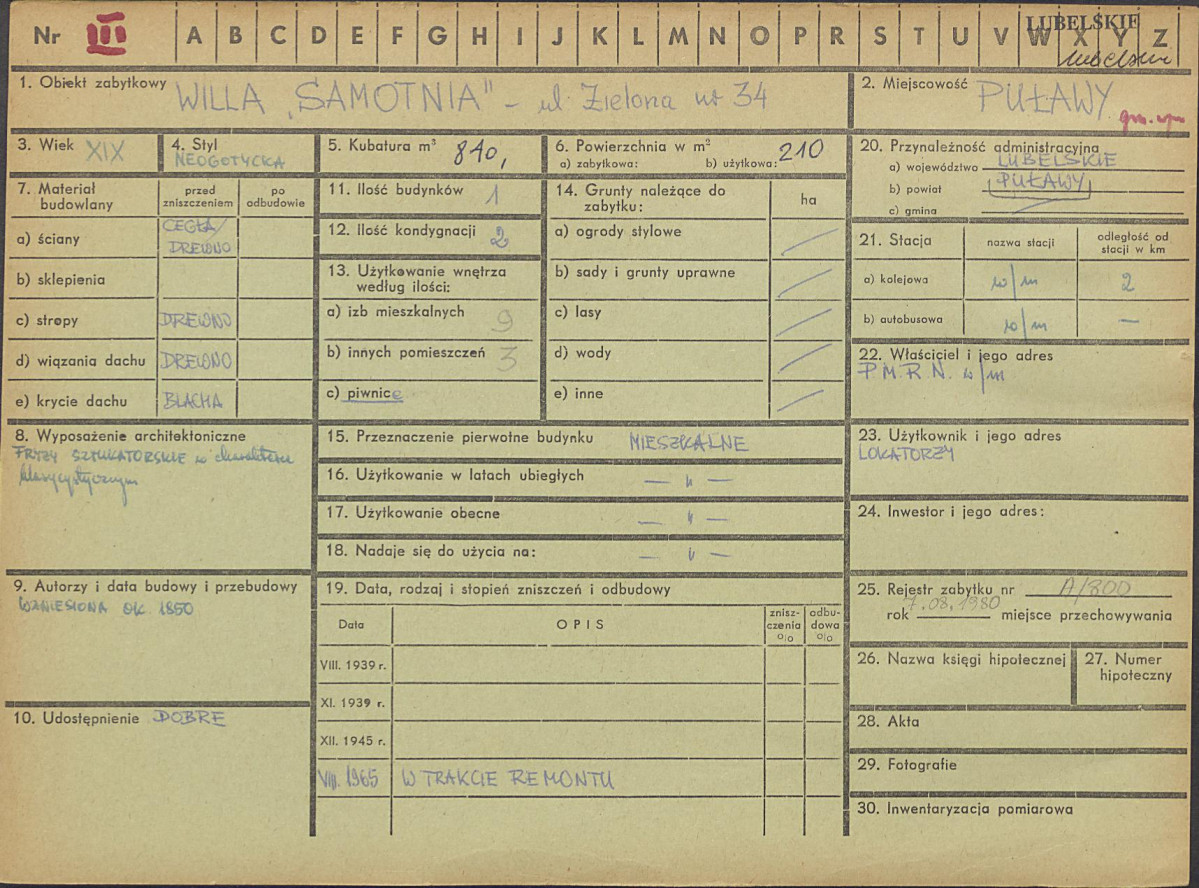 Nr III A B C D E F G H I J K L M N O P R S T U V W X Y Z
LUBELSKIE
lubelskie
1. Obiekt zabytkowy WILLA „SAMOTNIA" – ul. Zielona nr 34
2. Miejscowość PUŁAWY
3. Wiek XIX
4. Styl NEOGOTYCKA
5. Kubatura m³ 840,
6. Powierzchnia w m²
a) zabytkowa: b) użytkowa: 210
7. Materiał budowlany
przed zniszczeniem
po odbudowie
a) ściany CEGŁA/
DREWNO
b) sklepienia
c) stropy DREWNO
d) wiązania dachu DREWNO
e) krycie dachu BLACHA
8. Wyposażenie architektoniczne
FRYZY SZTUKATORSKIE w charakterze
klasycystycznym
9. Autorzy i data budowy i przebudowy
WZNIESIONA OK. 1850
10. Udostępnienie DOBRE
11. Ilość budynków 1
12. Ilość kondygnacji 2
13. Użytkowanie wnętrza
według ilości:
a) izb mieszkalnych 9
b) innych pomieszczeń 3
c) piwnice
14. Grunty należące do
zabytku:
ha
a) ogrody stylowe /
b) sady i grunty uprawne /
c) lasy /
d) wody /
e) inne /
15. Przeznaczenie pierwotne budynku MIESZKALNE
16. Użytkowanie w latach ubiegłych — " —
17. Użytkowanie obecne — " —
18. Nadaje się do użycia na: — " —
19. Data, rodzaj i stopień zniszczeń i odbudowy
Data
OPIS
znisz-
czenia
o|o
odbu-
dowa
o|o
VIII. 1939 r.
XI. 1939 r.
XII. 1945 r.
VIII. 1965 W TRAKCIE REMONTU
20. Przynależność administracyjna
a) województwo LUBELSKIE
b) powiat PUŁAWY
c) gmina
21. Stacja
nazwa stacji
odległość od
stacji w km
a) kolejowa w/m 2
b) autobusowa w/m —
22. Właściciel i jego adres
P.M.R.N. w/m
23. Użytkownik i jego adres
LOKATORZY
24. Inwestor i jego adres:
25. Rejestr zabytku nr A/800
rok 7.08.1980 miejsce przechowywania
26. Nazwa księgi hipotecznej
27. Numer
hipoteczny
28. Akta
29. Fotografie
30. Inwentaryzacja pomiarowa